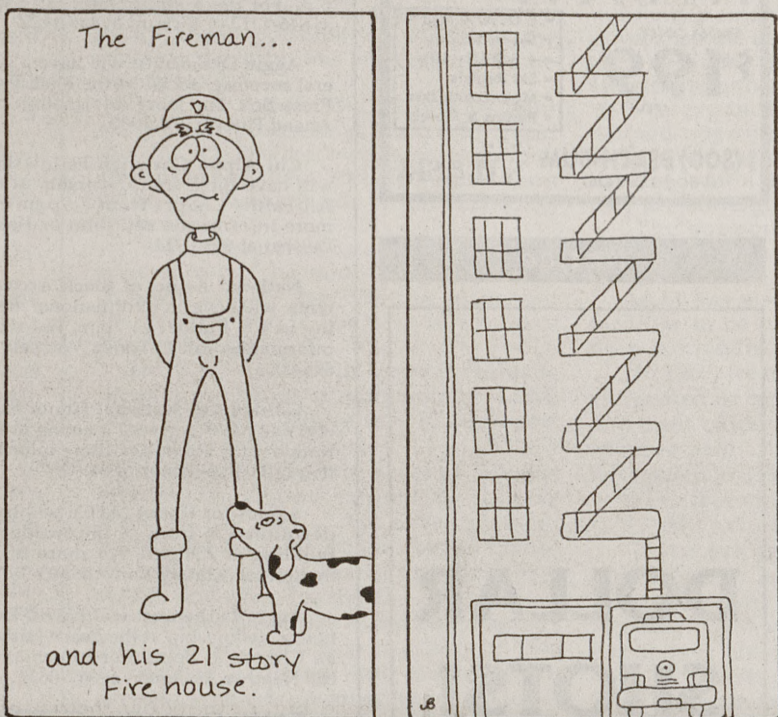 The Fireman...
and his 21 story
Fire house.
JB